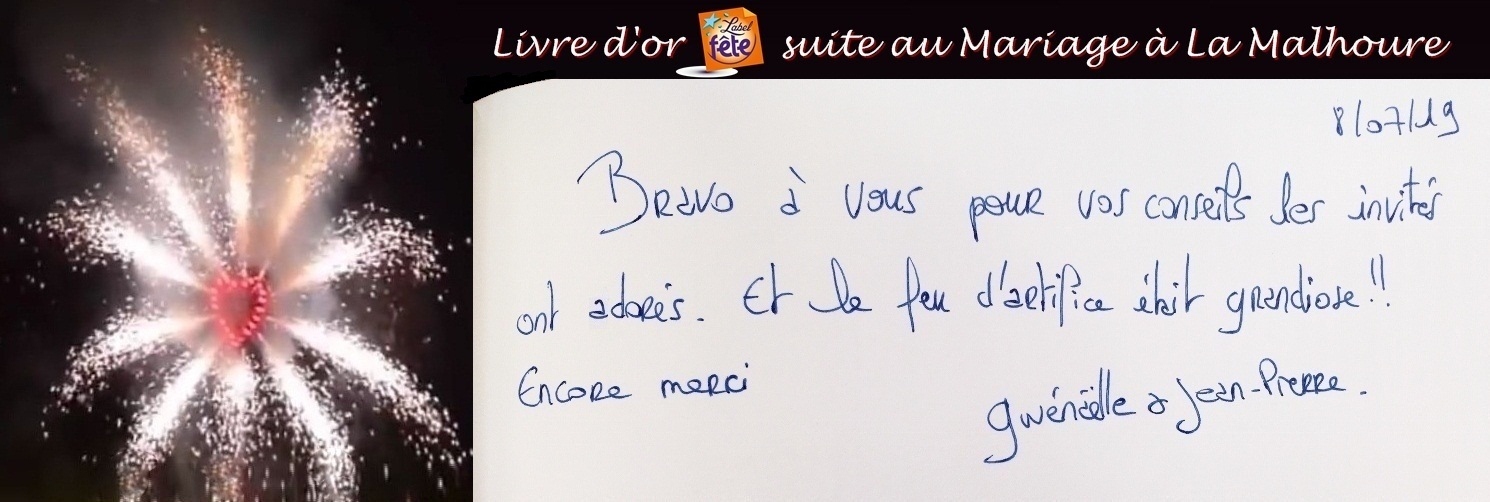 Livre d'or Label fête suite au Mariage à La Malhoure
8/07/19
Bravo à vous pour vos conseils les invités
ont adorés. Et le feu d'artifice était grandiose!!
Encore merci
Gwénaëlle & Jean-Pierre.